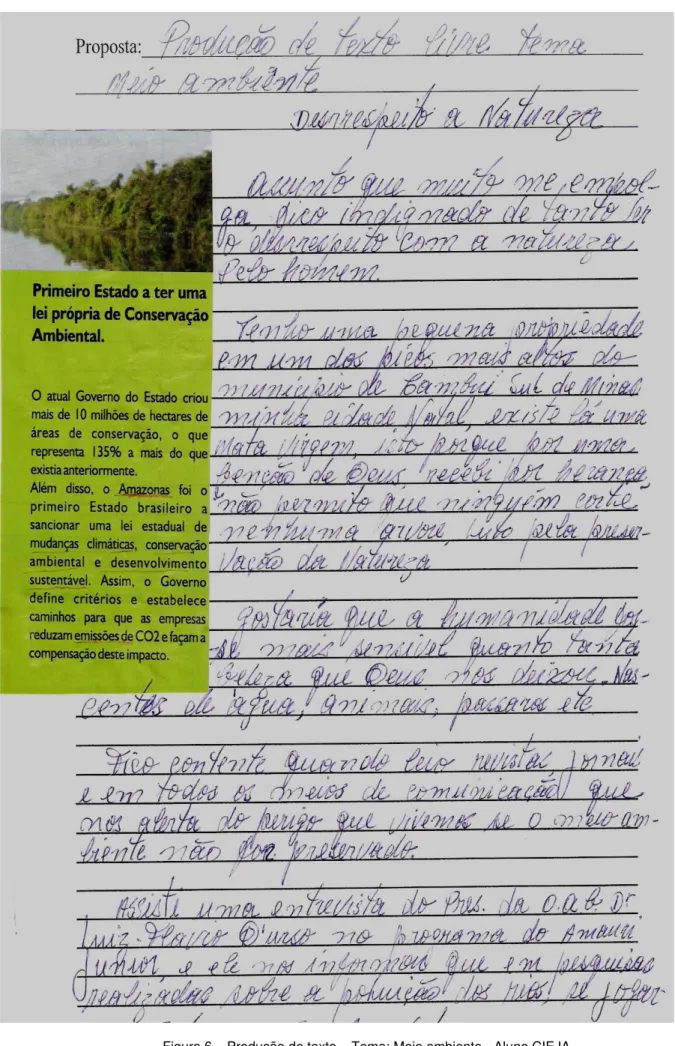 Proposta: Produção de texto livre. tema
Meio ambiente
Desrrespeito a Natureza
Primeiro Estado a ter uma
lei própria de Conservação
Ambiental.
O atual Governo do Estado criou
mais de 10 milhões de hectares de
áreas de conservação, o que
representa 135% a mais do que
existia anteriormente.
Além disso, o Amazonas foi o
primeiro Estado brasileiro a
sancionar uma lei estadual de
mudanças climáticas, conservação
ambiental e desenvolvimento
sustentável. Assim, o Governo
define critérios e estabelece
caminhos para que as empresas
reduzam emissões de CO2 e façam a
compensação deste impacto.
Assunto que muito me empol-
ga, fico indignado de tanto ler
o desrrespeito com a natureza,
Pelo homem.
Tenho uma pequena propriedade
em um dos picos mais altos do
município de Cambui Sul de Minas
minha cidade Natal, existe lá uma
Mata Virgem, isto porque por uma
benção de Deus, recebi por herança,
não permito que ninguém corte
nenhuma arvore, luto pela preser-
vação da Natureza
gostaria que a humanidade fos-
se mais sensivel quanto tanta
beleza que Deus nos deixou. Nas-
centes de água, animais, passaros etc
Fico contente quando leio revistas, jornais
e em todos os meios de comunicação que
nos alerta do perigo que vivemos se o meio am-
biente não for preservado.
Assisti uma entrevista do Pres. da O.a.b. Dr
Luiz Flavio D'urso no programa do Amauri
Junior, e ele nos informou que em pesquisas
realizadas sobre a poluição dos rios, se jogar
Figura 6 – Produção de texto – Tema: Meio ambiente - Aluno CIEJA